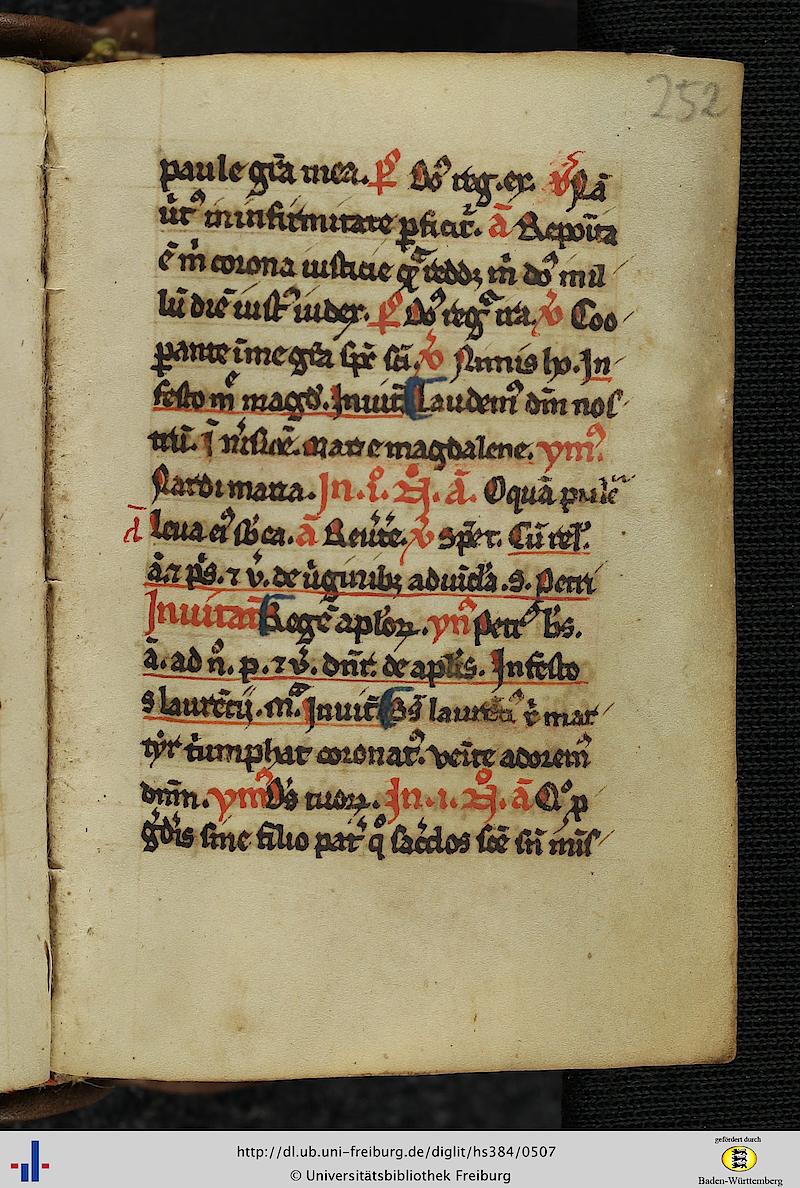 252
paule gr̄a mea. p̄s Dn̄s reg. ex. v̄ Nā
v̄t9 in infirmitate ꝑficit᷑. ā Reposita
ē m̄ corona iusticie qͣ̄ redd3 m̄ dn̄s in il
lū diē iust9 iudex. p̄s Dn̄s regͣ ira. v̄ Coo
ꝑante ī me gr̄a sp̄c sc̄i. v̄ Nimis ho. In
festo m̄e magd̄. Inuit̄ Laudem9 dn̄m nos
trū. ī
marie magdalene. ym9
Nardi maria. In. i. N̊. ā. O quā
d̄ leua ei9 sb̄ ca. ā Reūt̄e. v̄ Spēt. Cū rel̄.
ā. ⁊ p̄s. ⁊ v̄. de v̄ginib3 ad uicl̄a. S. Petri
Inuitat̄ Regē aplōꝝ. ymn9 Petr9 b̄s.
ā. ad n̄. p. ⁊ v̄. dn̄r. de apl̄is. In festo
s laurētij. mͬ. Inuit̄ B̄s laurēti9 x̄ mar
tyr t̄umphat coronat9. venite adorem9
dn̄m. ym9 D̄s tuoꝝ. In. i. N̊. ā Qͦ ꝓ
gd̄is sine filio pat̄ qͦ sac̄dos sc̄e sn̄ mis
http://dl.ub.uni-freiburg.de/diglit/hs384/0507
© Universitätsbibliothek Freiburg
gefördert durch
Baden-Württemberg